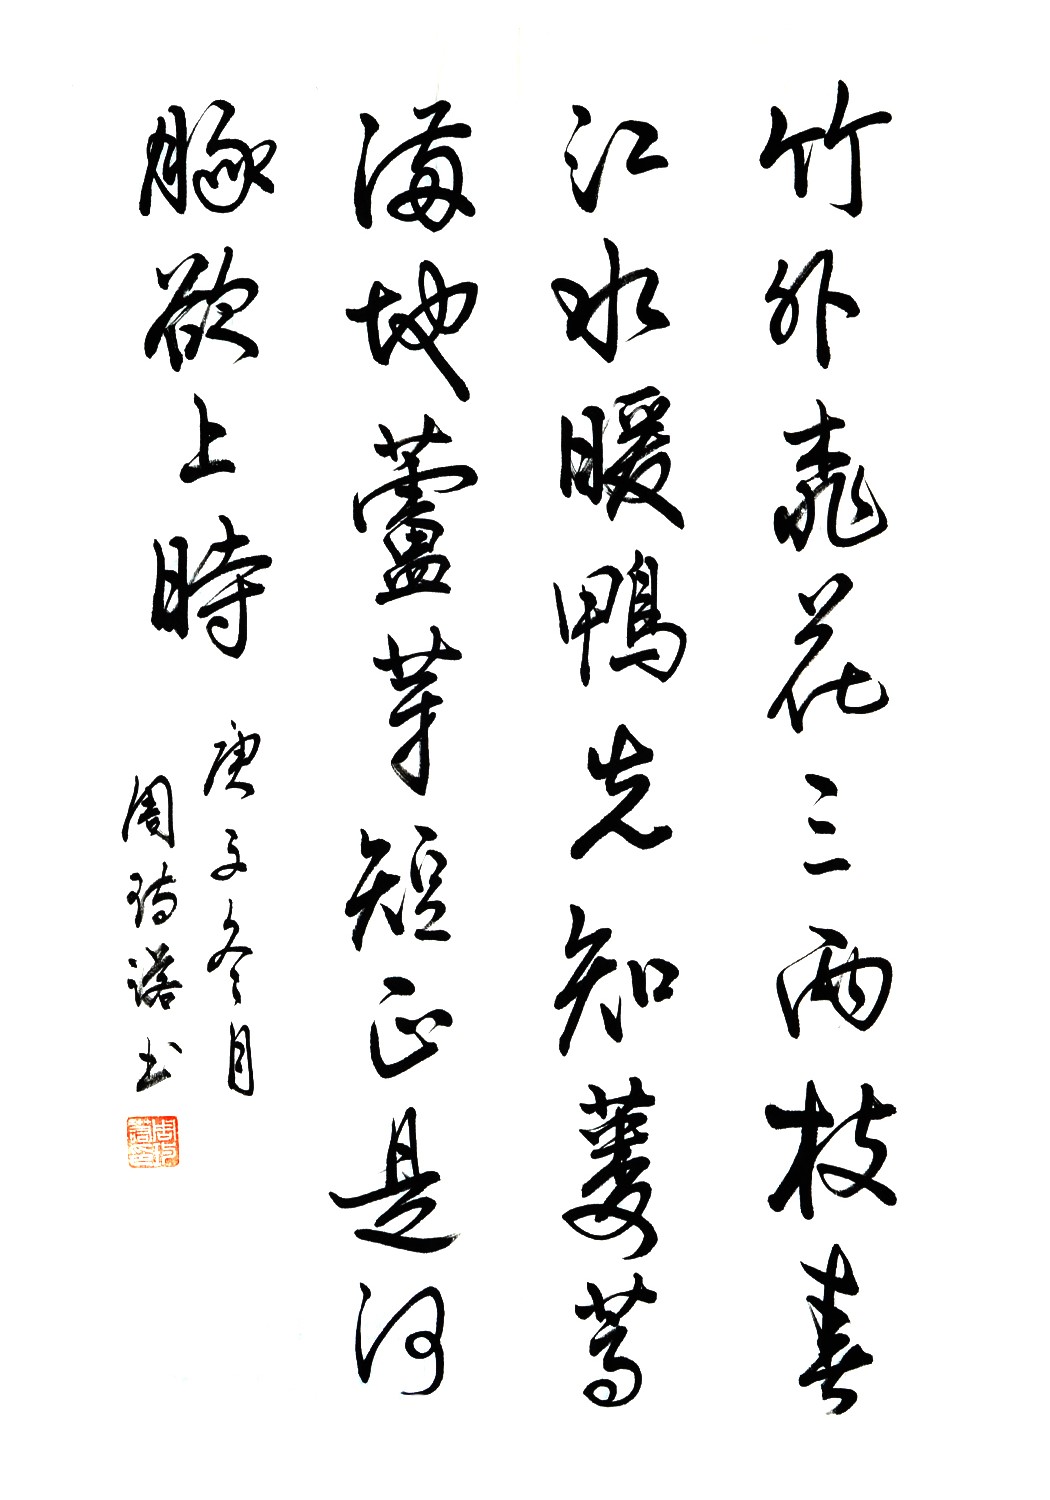 竹外桃花三兩枝春
江水暖鴨先知蔞蒿
滿地蘆芽短正是河
豚欲上時
庚子冬月
周詩諾书